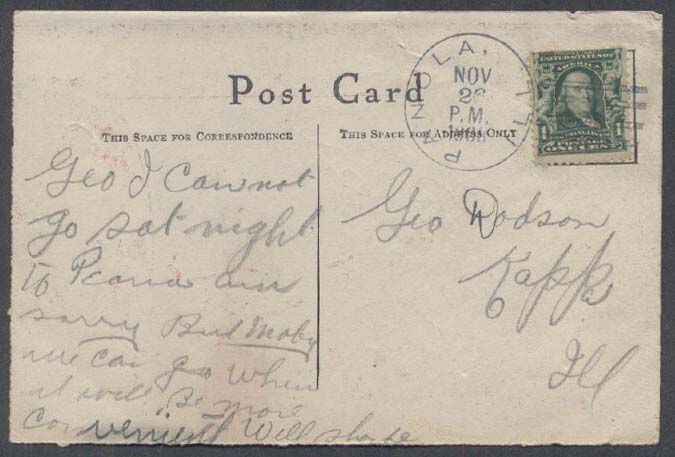 Post Card
THIS SPACE FOR CORRESPONDENCE
THIS SPACE FOR ADDRESS ONLY
PANOLA, ILL.
NOV
26
P.M.
1908
UNITED STATES OF
AMERICA
FRANKLIN
POSTAGE
ONE CENT
Geo I Can not
go sat night
to Peoria am
sorry But Maby
we can go when
it will Be more
convenient Will
Geo Dodson
Kappa
Ill